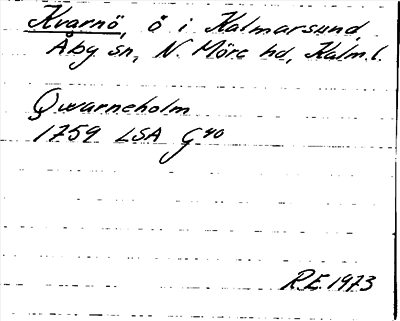 Kvarnö, ö i Kalmarsund,
Åby sn, N. Möre hd, Kalm.l.
Qwarneholm
1759 LSA G 40
R.E. 1973